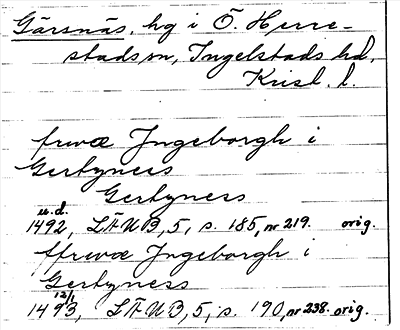 Gärsnäs, hg i Ö. Herre-
stads sn, Ingelstads hd,
Krist. l.
frwæ Jngeborgh i
Gertyness
Gertyness
u.d.
1492, LÄUB, 5, s. 185, nr 219. orig.
ffrwæ Jngeborgh i
Gertyness
12/1
1493, LÄUB, 5, s. 190, nr 238. orig.